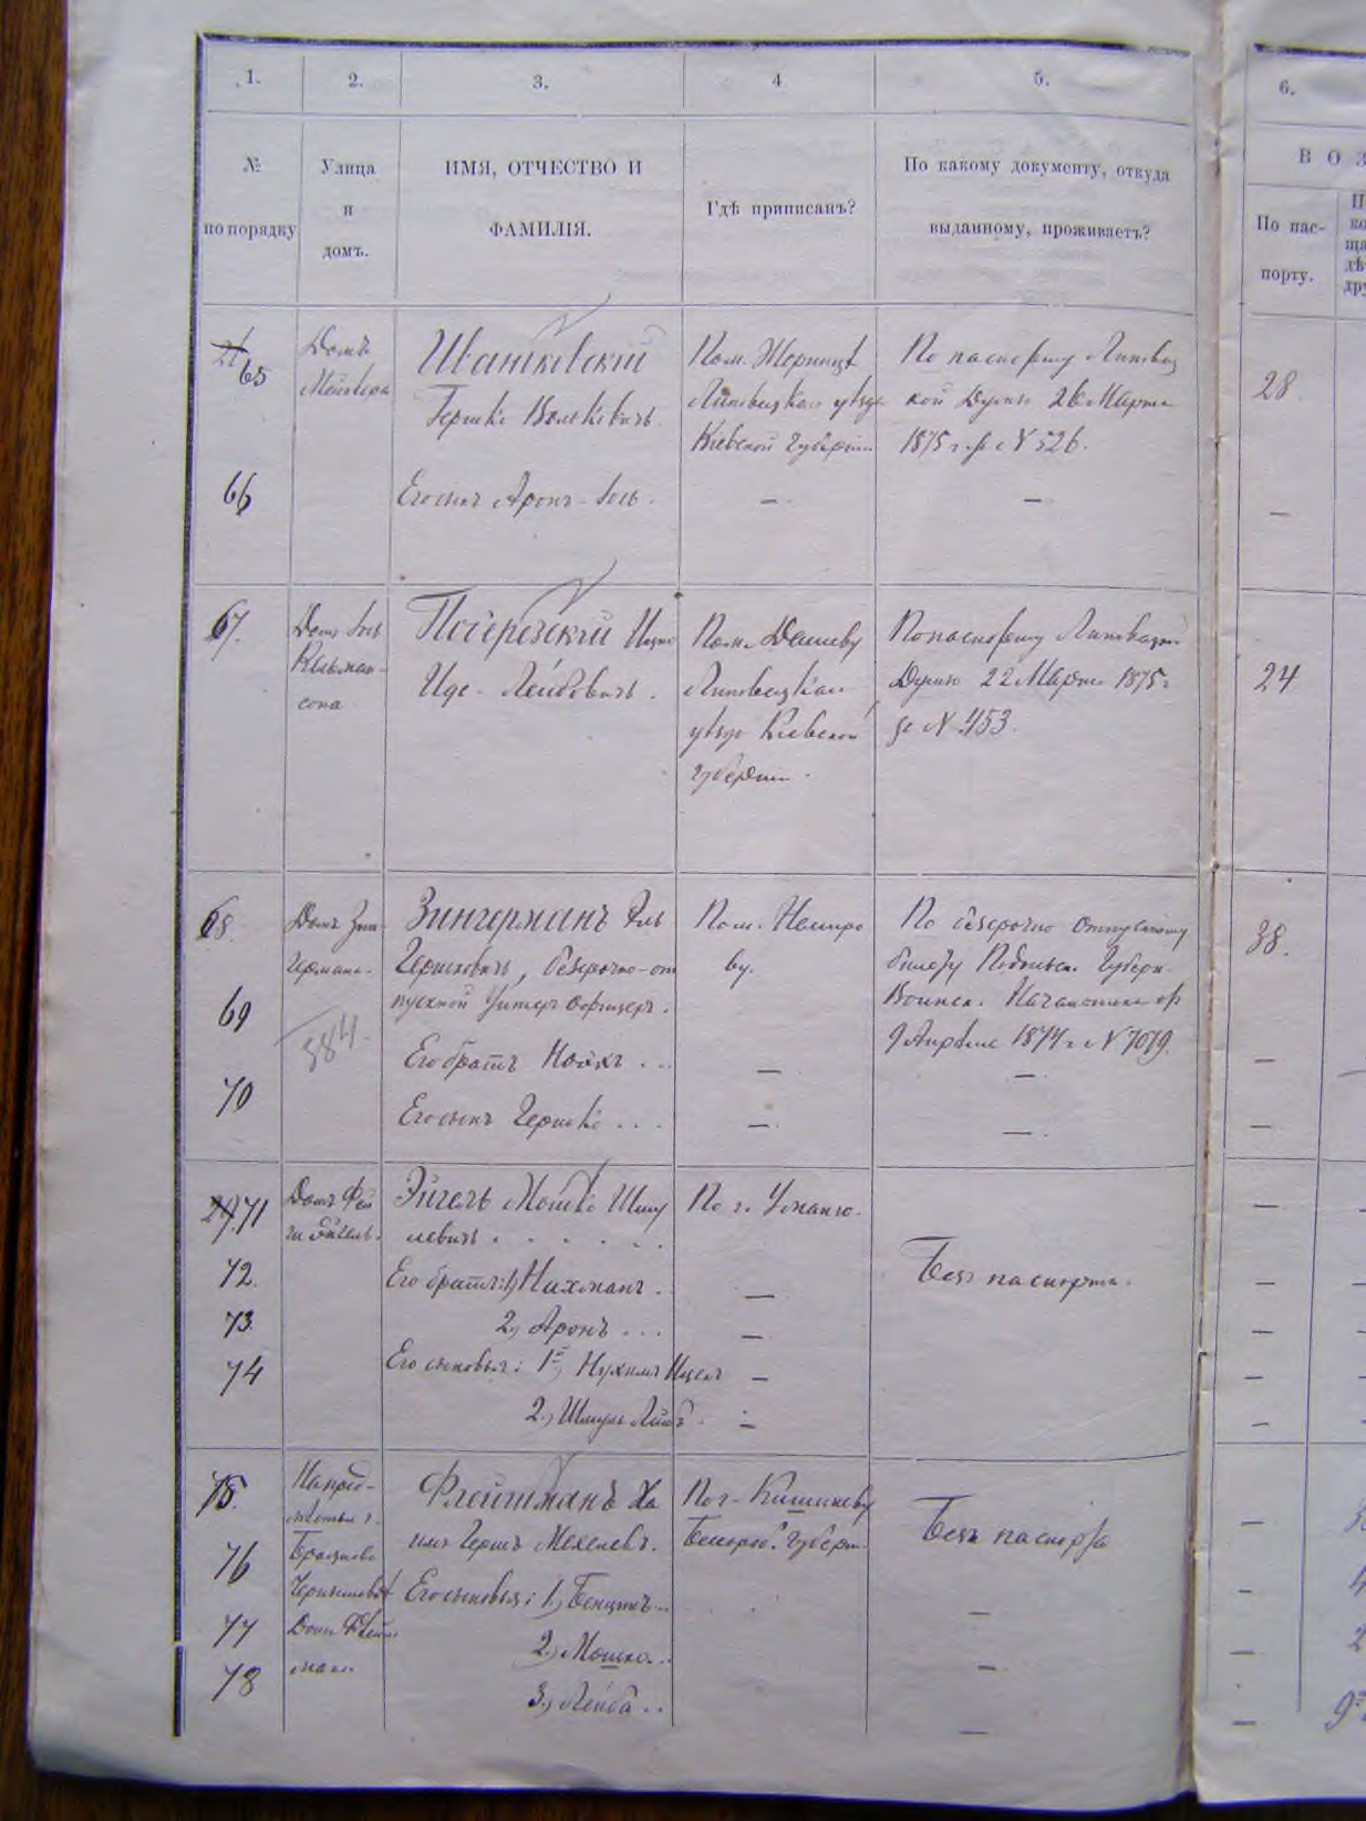 1. 2. 3. 4 5. 6.
№
по порядку
Улица
и
домъ.
ИМЯ, ОТЧЕСТВО И
ФАМИЛІЯ.
Гдѣ приписанъ?
По какому документу, откуда
выданному, проживаетъ?
ВОЗ
По пас-
порту.
65
Домъ
Гершко Вольковичъ.
Пом.
Липовецкаго уѣзда
Кіевской губерніи
По паспорту Липовец
кой Думы 26 Марта
1875 г. за № 526.
28
66
Его сынъ Аронъ-Іось.
—
—
—
67.
Домъ Іось
сона
Погребскій Ицко
Иде-Лейбовичъ.
Пом. Дашеву
Липовецкаго
уѣзда Кіевской
губерніи.
По паспорту Липовецкой
Думы 22 Марта 1875 г.
за № 453.
24
68.
Домъ Зин
германа.
Зингерманъ
Гершковичъ, безсрочно-от
пускной Унтеръ офицеръ.
Пом. Немиро
ву.
По безсрочно отпускному
билету Подольск. Губерн.
Воинск. Начальника отъ
9 Апрѣля 1874 г. № 7079.
38.
69
584.
Его братъ
—
—
—
70
Его сынъ Гершко
—
—
—
71
Домъ Фей
ги Эйгель.
Эйгель Мошко Шму
левичъ
По г. Уманю.
Безъ паспорта.
—
72.
Его братья: 1) Нахманъ.
—
—
73.
2) Аронъ
—
—
74
Его сыновья: 1й) Нухимъ Ицель
—
—
2) Шмуль Лейб
—
—
75.
Флейтманъ Ха
имъ Гершъ Мехелевъ.
По г. Кишиневу
Бессараб. губерн.
Безъ паспорта
—
76
Его сыновья: 1)
—
—
77
2) Мошко
—
—
78
3) Лейба
—
—